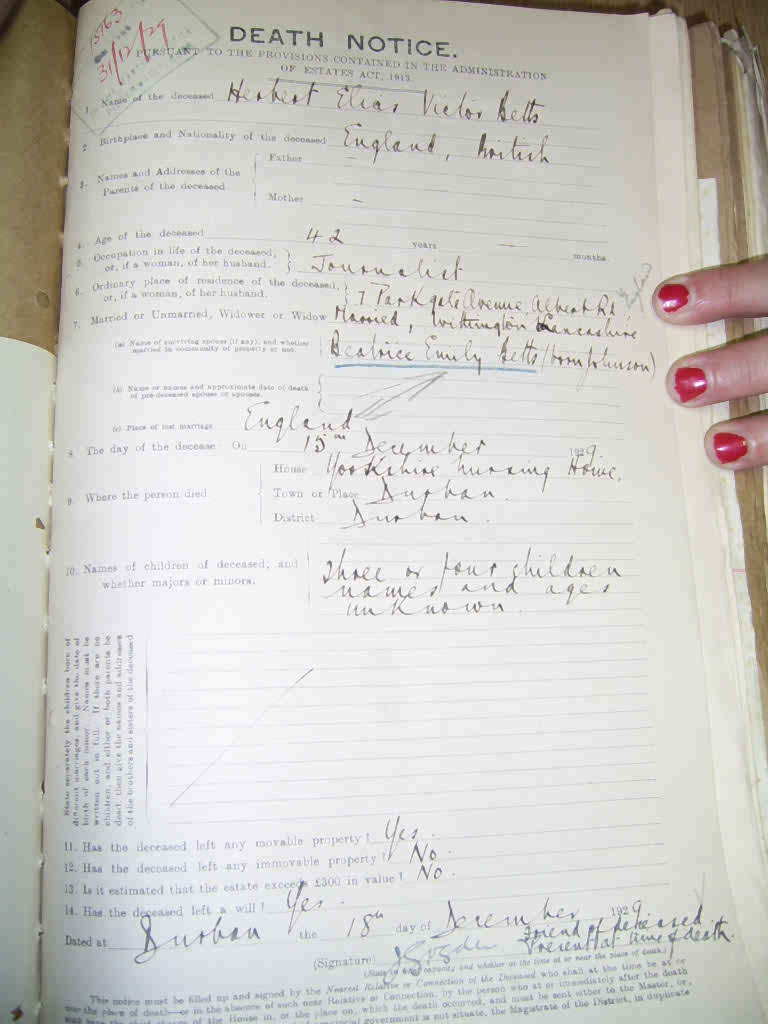 15763
31/12/29
DEATH NOTICE.
PURSUANT TO THE PROVISIONS CONTAINED IN THE ADMINISTRATION
OF ESTATES ACT, 1913.
1. Name of the deceased Herbert Elias Victor Betts
2. Birthplace and Nationality of the deceased England, British
3. Names and Addresses of the Parents of the deceased.
Father –
Mother –
4. Age of the deceased 42 years — months.
5. Occupation in life of the deceased, or, if a woman, of her husband. Journalist
6. Ordinary place of residence of the deceased, or, if a woman, of her husband. 7 Parkgate Avenue, Albert Rd,
England
7. Married or Unmarried, Widower or Widow Married, Withington Lancashire
(a) Name of surviving spouse (if any), and whether married in community of property or not. Beatrice Emily Betts (born Johnson)
(b) Name or names and approximate date of death of pre-deceased spouse or spouses.
(c) Place of last marriage England
8. The day of the decease On 15th December 1929.
9. Where the person died
House Yorkshire Nursing Home,
Town or Place Durban.
District Durban.
10. Names of children of deceased, and whether majors or minors.
Three or four children
names and ages
unknown.
State separately the children born of
different marriages, and give the date of
birth of each minor. Names must be
written out in full. If there are no
children, and either or both parents be
dead, then give the names and addresses
of the brothers and sisters of the deceased
11. Has the deceased left any movable property? Yes.
12. Has the deceased left any immovable property? No.
13. Is it estimated that the estate exceeds £300 in value? No.
14. Has the deceased left a will? Yes.
Dated at Durban the 18th day of December 1929
(Signature)
Friend of deceased.
Present at time of death.
(State in what capacity, and whether at the time at or near the place of death.)
This notice must be filled up and signed by the Nearest Relative or Connection of the Deceased who shall at the time be at or
near the place of death—or in the absence of such near Relative or Connection, by the person who at or immediately after the death
House in, or the place on, which the death occurred, and must be sent either to the Master, or,
government is not situate, the Magistrate of the District, in duplicate